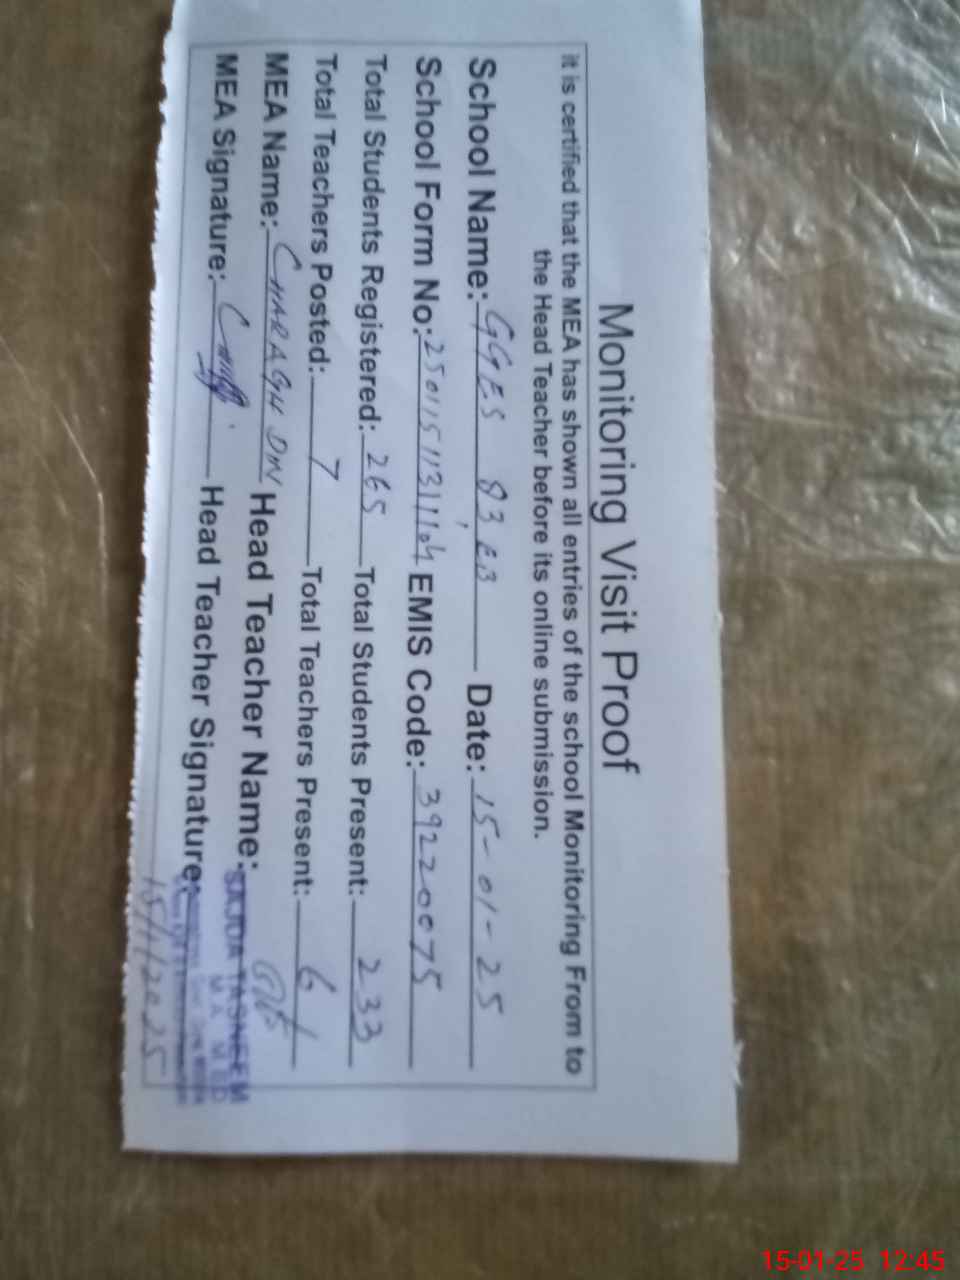 Monitoring Visit Proof
it is certified that the MEA has shown all entries of the school Monitoring From to
the Head Teacher before its online submission.
School Name: GGES 83 EB Date: 15-01-25
School Form No: EMIS Code: 39220075
Total Students Registered: 265 Total Students Present: 233
Total Teachers Posted: 7 Total Teachers Present: 6
MEA Name: CHARAGH DIN Head Teacher Name: SAJDA TASNEEM
M.A M.ED
MEA Signature: Head Teacher Signature:
15/1/2025
15-01-25 12:45